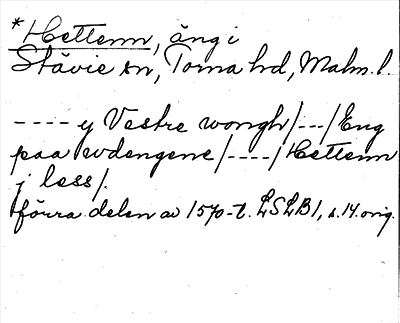 *Hettenn, äng i
Stävie sn, Torna hd, Malm. l.
---- y Vestre wongh/---/Eng
paa evdengene/----/Hettenn
j less/.
förra delen av 1570-t. LSLB1, s. 14. orig.